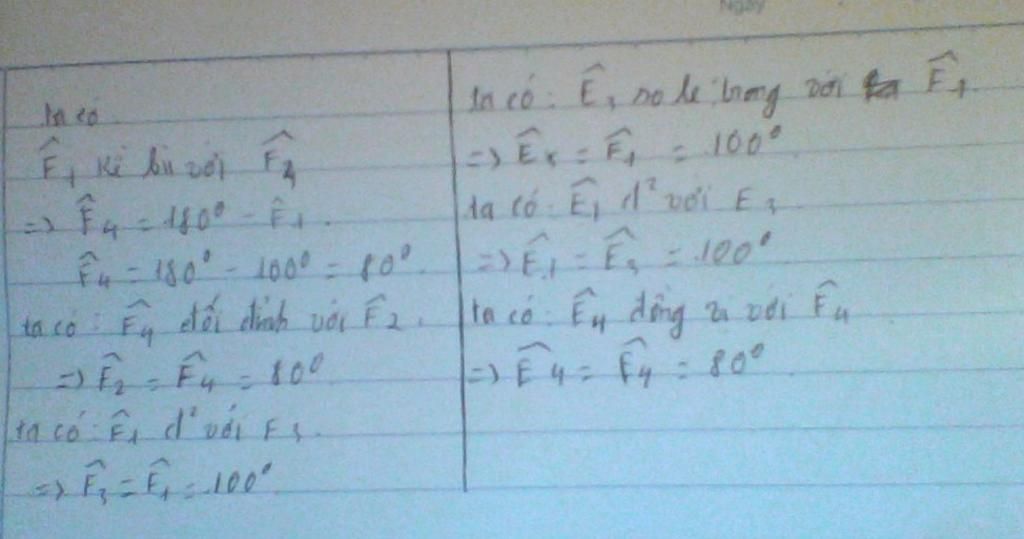 Ngày
ta có
F̂₁ kề bù với F̂₄
=> F̂₄ = 180⁰ - F̂₁.
F̂₄ = 180⁰ - 100⁰ = 80⁰.
ta có: F̂₄ đối đỉnh với F̂₂.
=> F̂₂ = F̂₄ = 80⁰
ta có: F̂₁ đ² với F₃.
=> F̂₃ = F̂₁ = 100⁰
ta có: Ê₃ so le trong với F̂₁.
=> Ê₃ = F̂₁ = 100⁰
ta có: Ê₁ đ² với E₃
=> Ê₁ = Ê₃ = 100⁰
ta có: Ê₄ đồng vị với F̂₄
=> Ê₄ = F̂₄ = 80⁰